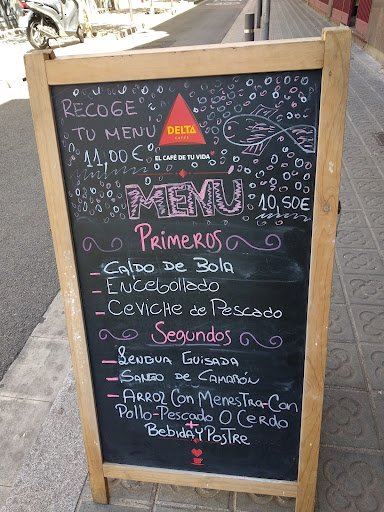 RECOGE
TU MENU
11,00€
DELTA
cafés
EL CAFÉ DE TU VIDA
MENÚ
10,50€
PRIMEROS
- CALDO DE BOLA
- ENCEBOLLADO
- CEVICHE DE PESCADO
SEGUNDOS
- LENGUA GUISADA
- SANGO DE CAMARÓN
- ARROZ CON MENESTRA-CON
POLLO-PESCADO O CERDO
+
BEBIDA Y POSTRE